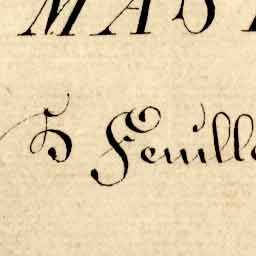 MAS
5 Feuille